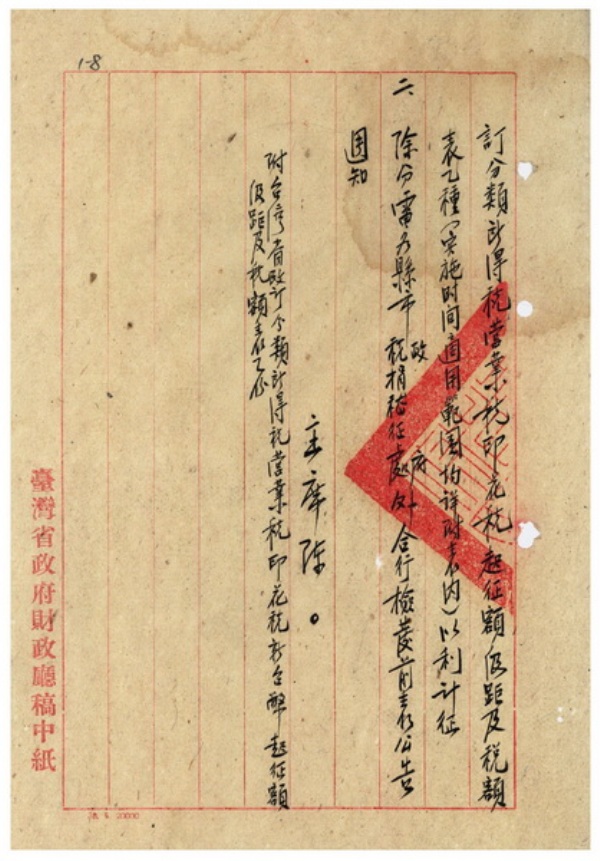 1-8
訂分類所得稅營業稅印花稅起征額級距及稅額
表乙種(实施时间適用範圍均詳附表內)以利計征
二、除分電各縣市政府稅捐稽征處外合行檢發前表公告
週知
主席陈。
附台湾省改訂分類所得稅營業稅印花稅新台幣起征額
級距及稅額表乙份
臺灣省政府財政廳稿中紙